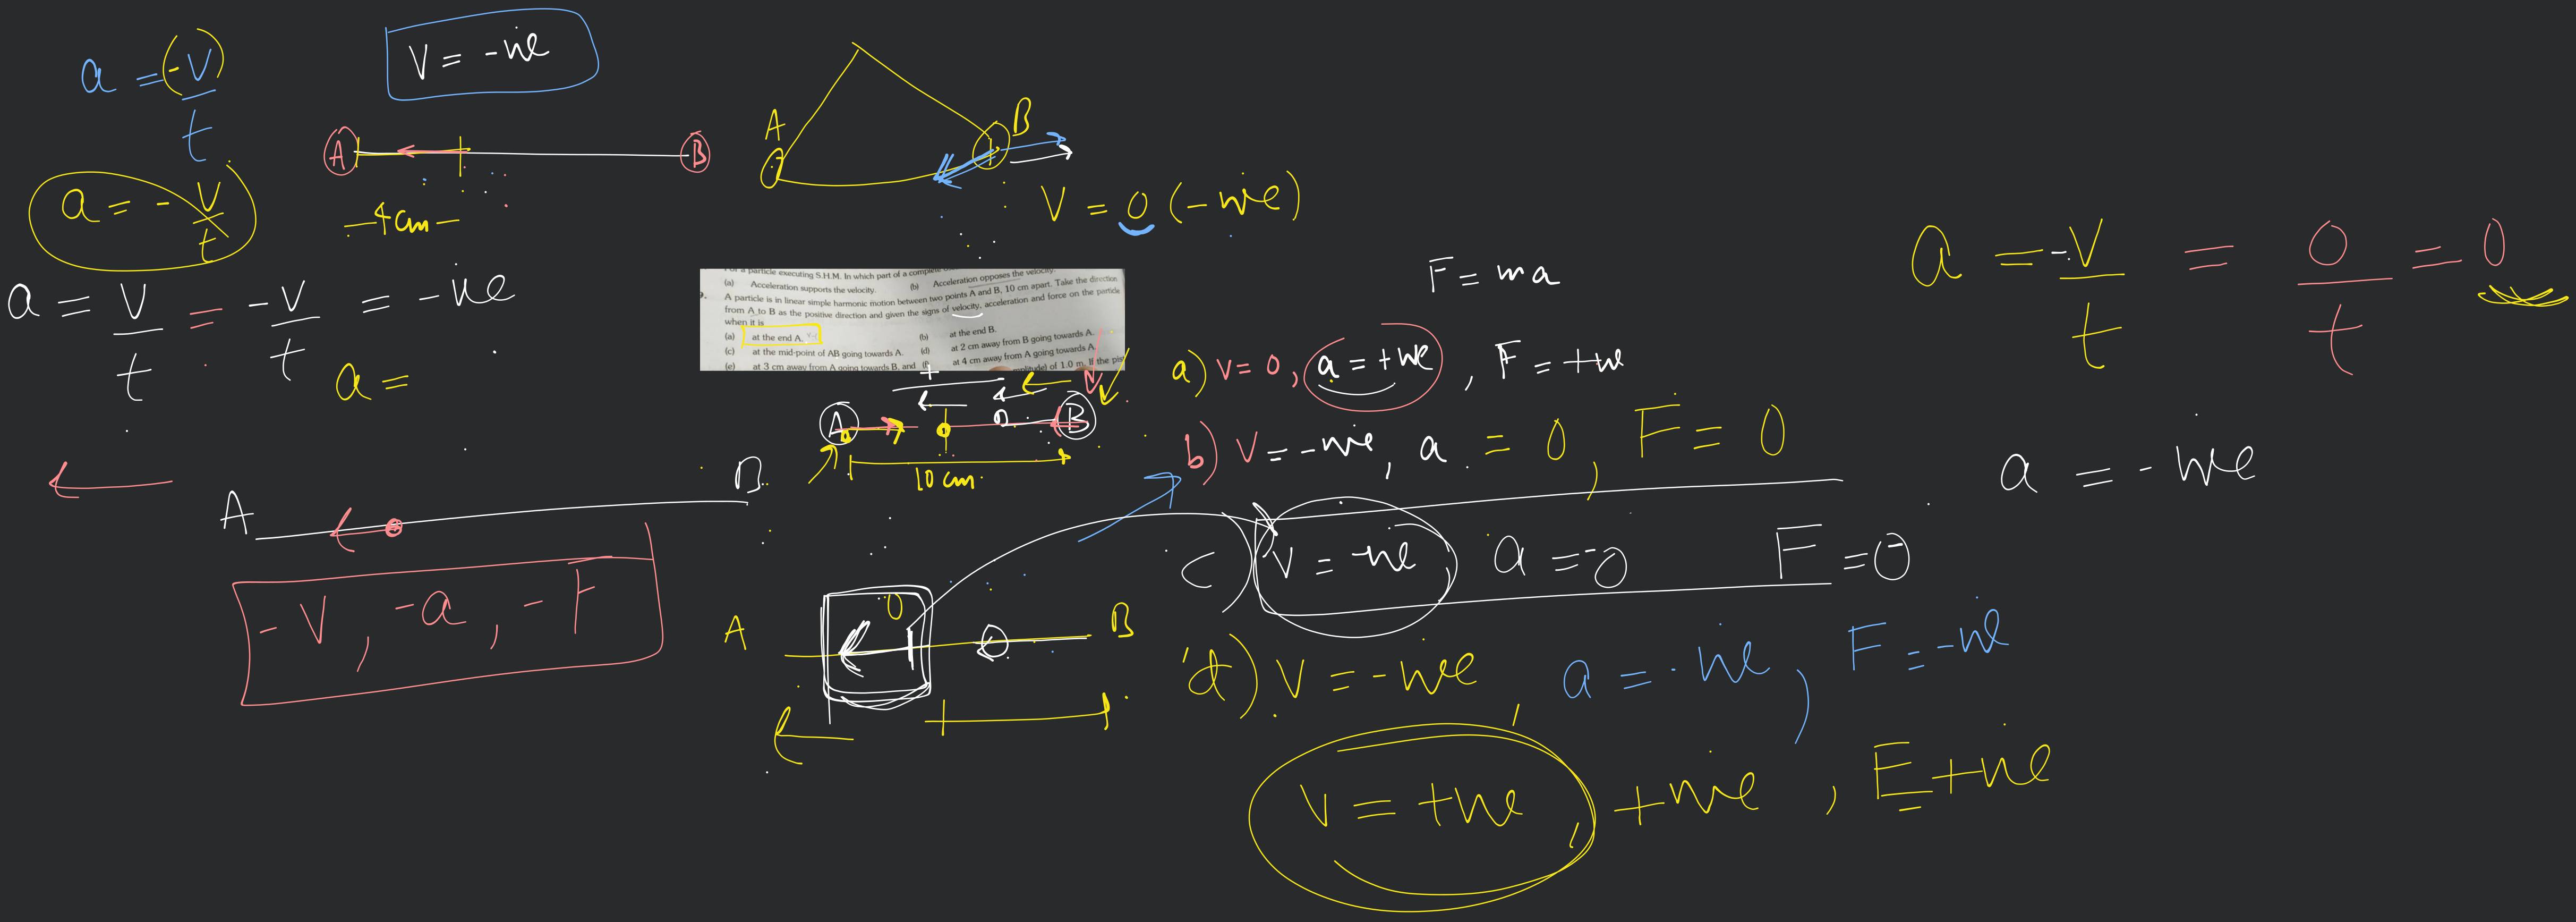 a = (-v)/t
V = -ve
A B
-4cm-
a = - v/t
a = v/t = -v/t = -ve
a =
A B
V = 0 (-ve)
particle executing S.H.M. In which part of a
(a) Acceleration supports the velocity. (b) Acceleration opposes the velocity.
A particle is in linear simple harmonic motion between two points A and B, 10 cm apart. Take the direction
from A to B as the positive direction and given the signs of velocity, acceleration and force on the particle
when it is
(a) at the end A. (b) at the end B.
(c) at the mid-point of AB going towards A. (d) at 2 cm away from B going towards A.
(e) at 3 cm away from A going towards B, and (f) at 4 cm away from A going towards A.
of 1.0 m. If the
+
A B
10 cm
F = ma
a = -v/t = 0/t = 0
a) v = 0, a = +ve, F = +ve
b) V = -ve, a = 0, F = 0
a = -ve
c) V = -ve a = 0 F = 0
A B
-V, -a, -F
A 0 B
d) V = -ve a = -ve, F = -ve
V = +ve, +ve, F +ve